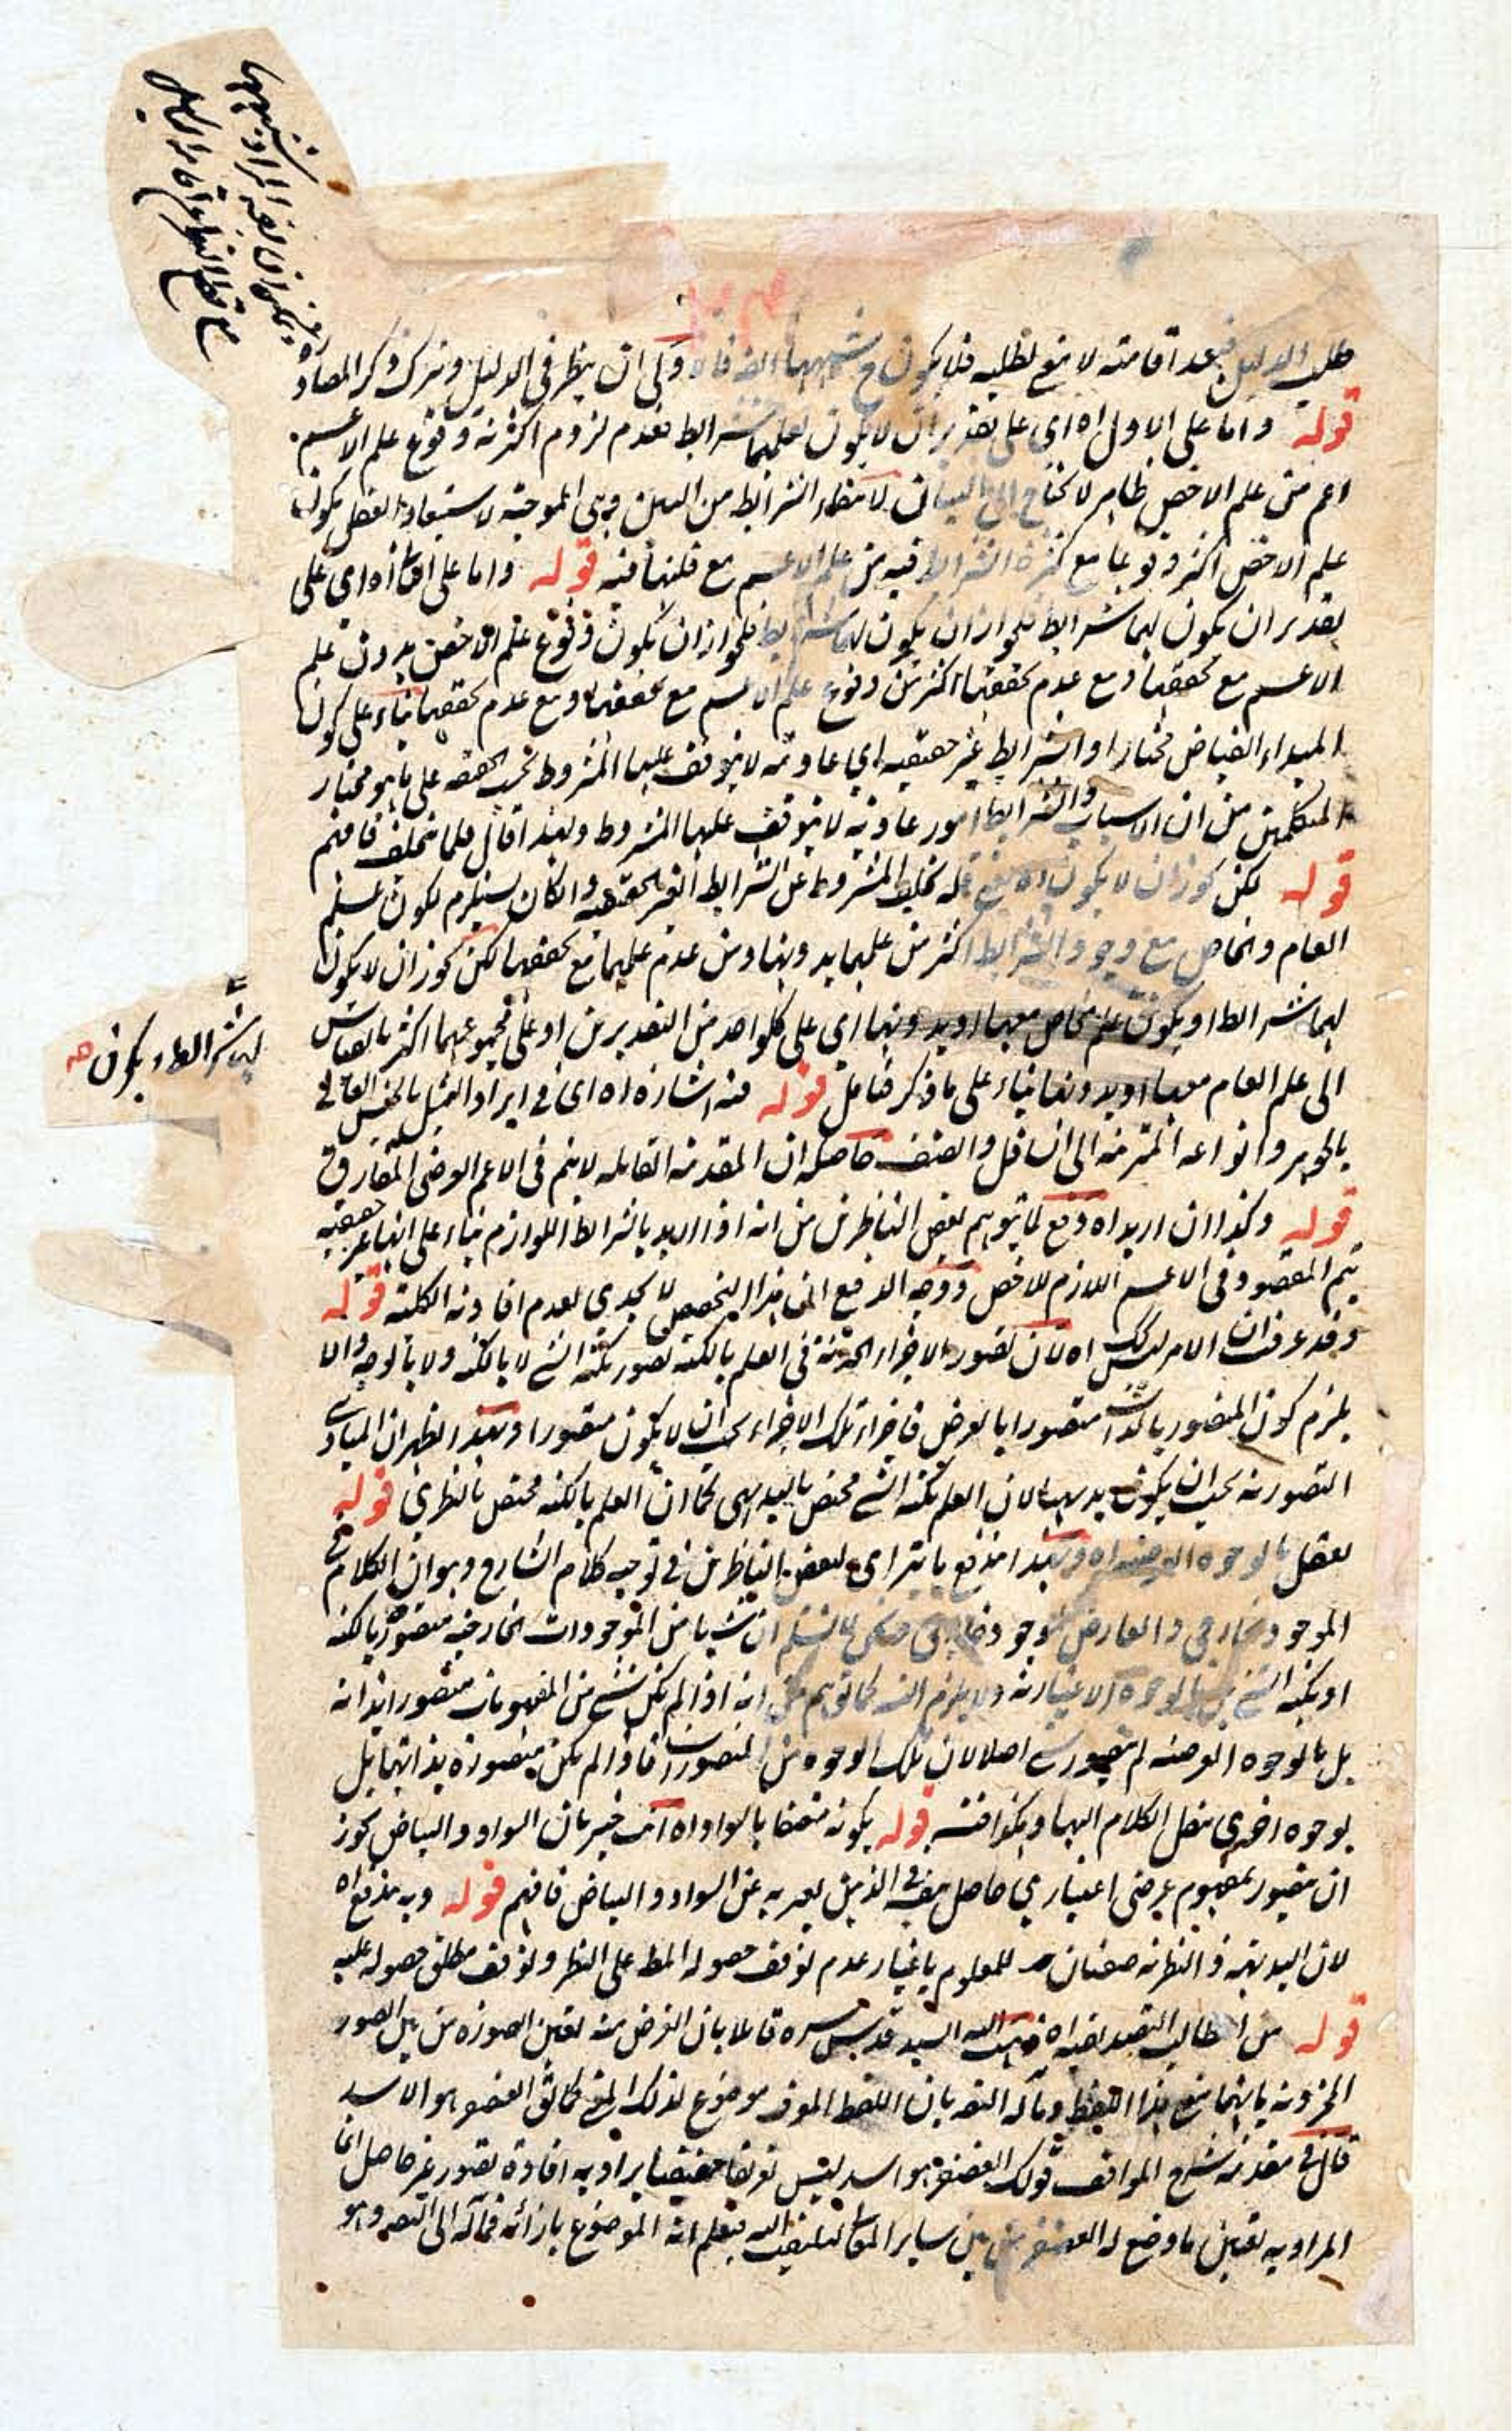 طلب الدليل فبعد اقامته لا ينفع لطلبه فلا يكون ح شبهها ان ينظر فى الدليل ويترك ذكر المصادرة
قوله واما على الاول اه اى على تقدير ان لا يكون لعلمهما شرايط فعدم لزوم اكثرية وقوع علم الاعم
اعم من علم الاخص ظاهر لا يحتاج الى البيان لانتفاء الشرايط من البين وهى الموجبة لاستبعاد العقل بكون
علم الاخص اكثر وقوعا مع كثرة الشرايط فيه من علم الاعم مع قلتها فيه قوله واما على الثانى اه اى على
تقدير ان يكون لهما شرايط فلجواز ان يكون لهما شرايط فلجواز ان يكون وقوع علم الاخص بدون علم
الاعم مع تحققها ومع عدم تحققها اكثر من وقوع علم الاعم مع تحققها ومع عدم تحققها بناء على كون
المبداء الفياض مختارا او الشرايط غير حقيقيه اى عاديه لا يتوقف عليها المشروط بحسب الحقيقه على ما هو مختار
المتكلمين من ان الاسباب والشرايط امور عادية لا يتوقف عليها المشروط ولهذا قال قلما يتخلف فافهم
قوله لكن يجوز ان لا يكون اه يعنى قلة تخلف المشروط عن الشرايط الغير الحقيقيه وان كان يستلزم لكون علم
العام والخاص مع وجود الشرايط اكثر من علمهما بدونها ومن عدم علمهما مع تحققها لكن يجوز ان لا يكون
لهما شرايط او يكون علم الخاص معها او بدونها اى على كل واحد من التقديرين او على مجموعهما اكثر بالقياس
الى علم العام معها او بدونها بناء على ما ذكر فتامل قوله فيه اشارة اه اى فى ايراد التمثيل بالجنس العالى
بالجوهر وانواعه المترتبة الى السافل والصنف حاصله ان المقدمة القائله لا يتم فى الاعم العرضى المفارق
قوله وكذا ان اريد اه دفع لما يتوهم بعض الناظرين من انه اذا اريد بالشرايط اللوازم بناء على انها غير حقيقيه
يتم المقصود فى الاعم اللازم للاخص ووجه الدفع ان هذا التخصيص لا يجدى لعدم افادته الكلية قوله
وقد عرفت ان الامر ليس كك اه لان تصور الاجزاء الحدية فى العلم بالكنه تصور بكنه الشئ لا بالكنه ولا بالوجه والا
يلزم كون المتصور بالذات متصورا بالعرض فاجزاء تلك الاجزاء يجب ان لا يكون متصورا وبهذا ظهر ان المبادى
التصورية يجب ان يكون بديهيا لان العلم بكنه الشئ مختص بالبديهى كما ان العلم بالكنه مختص بالنظرى قوله
تعقل بالوجوه العرضيه اه وبهذا اندفع ما يتراى لبعض الناظرين فى توجيه كلام الشارح وهو ان الكلام فى
الموجود الخارجى والعارض لموجود خارجى فنحن لا نسلم ان شيئا من الموجودات الخارجية متصور بالكنه
او بكنه الشئ بل بالوجوه الاعتبارية ولا يلزم التسلسل كما توهم من انه اذا لم يكن شئ من المفهومات متصورا بذاته
بل بالوجوه العرضيه لم يتصور شئ اصلا لان تلك الوجوه من المتصورات فاذا لم يكن متصورة بذاتها بل
بوجوه اخرى ننقل الكلام اليها وهكذا فتسلسل قوله بكونه متصفا بالسواد اه انت خبير بان السواد والبياض يجوز
ان يتصور بمفهوم عرضى اعتبارى حاصل بنفسه فى الذهن يعبر به عن السواد والبياض فافهم قوله وبه يندفع اه
لان البديهية والنظرية صفتان للمعلوم باعتبار عدم توقف حصوله المط على النظر وتوقف مطلق حصوله عليه
قوله من المطالب التصديقيه اه ذهب اليه السيد قدس سره قائلا بان الغرض منه تعيين الصورة من بين الصور
المخزونة بانها معنى هذا اللفظ ومآله التصديق بان اللفظ المعرف موضوع لذلك المعنى كما يق الغضنفر هو الاسد
قال فى مقدمة شرح المواقف قولك الغضنفر هو اسد ليس تعريفا حقيقيا يراد به افادة تصور غير حاصل انما
المراد به تعيين ما وضع له الغضنفر من بين ساير المعانى ليلتفت اليه فيعلم انه الموضوع بازائه فمآله الى التصديق وهو
لهما شرايط او يكون صح